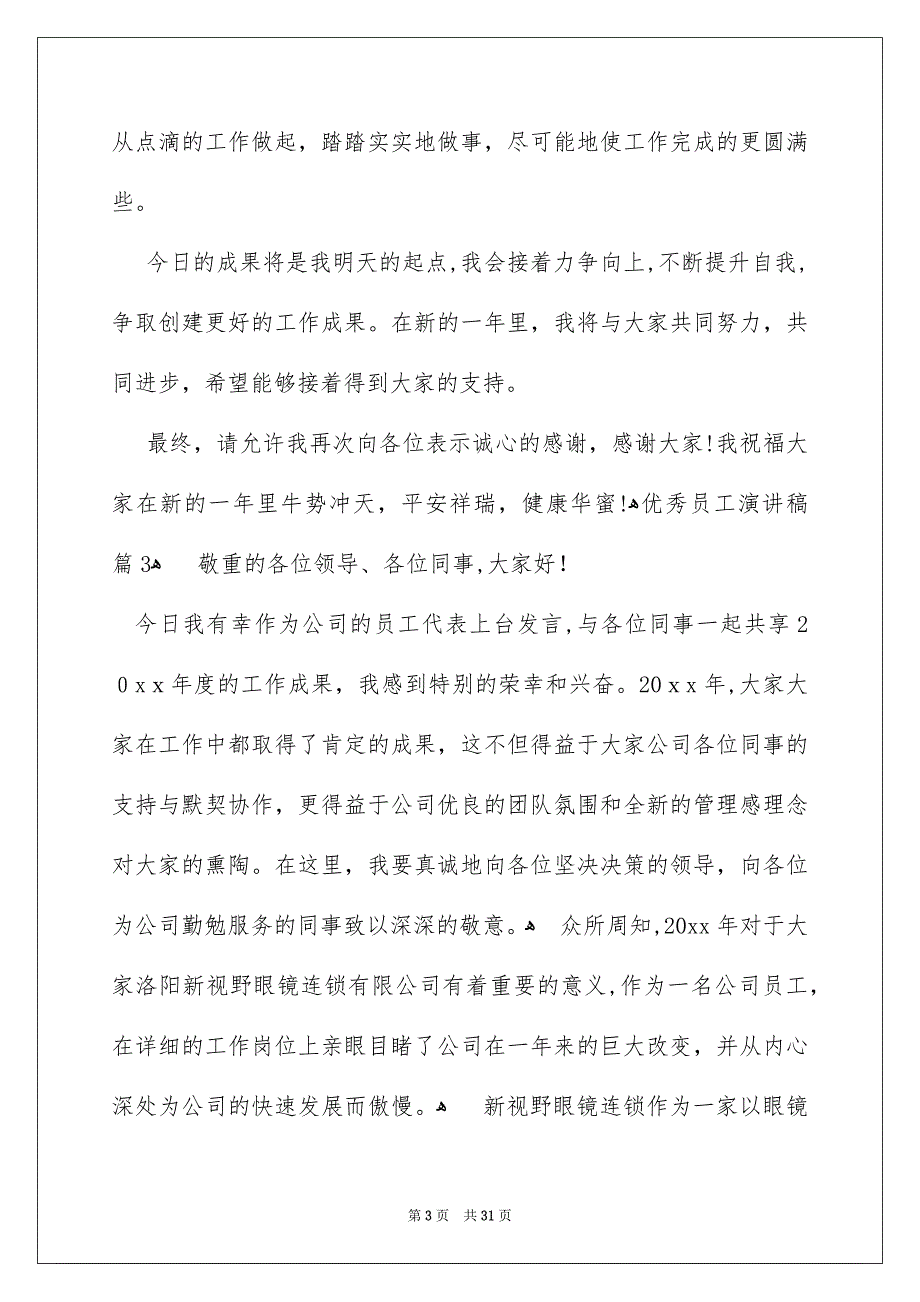 从点滴的工作做起，踏踏实实地做事，尽可能地使工作完成的更圆满
些。
今日的成果将是我明天的起点,我会接着力争向上,不断提升自我,
争取创建更好的工作成果。在新的一年里，我将与大家共同努力，共
同进步，希望能够接着得到大家的支持。
最终，请允许我再次向各位表示诚心的感谢，感谢大家!我祝福大
家在新的一年里牛势冲天，平安祥瑞，健康华蜜!ﻫ优秀员工演讲稿
篇3ﻫ 敬重的各位领导、各位同事,大家好!
今日我有幸作为公司的员工代表上台发言,与各位同事一起共享2
0xx年度的工作成果，我感到特别的荣幸和兴奋。20xx年,大家大
家在工作中都取得了肯定的成果，这不但得益于大家公司各位同事的
支持与默契协作，更得益于公司优良的团队氛围和全新的管理感理念
对大家的熏陶。在这里，我要真诚地向各位坚决决策的领导，向各位
为公司勤勉服务的同事致以深深的敬意。ﻫ 众所周知,20xx年对于大
家洛阳新视野眼镜连锁有限公司有着重要的意义,作为一名公司员工,
在详细的工作岗位上亲眼目睹了公司在一年来的巨大改变，并从内心
深处为公司的快速发展而傲慢。ﻫ 新视野眼镜连锁作为一家以眼镜
第3页 共31页